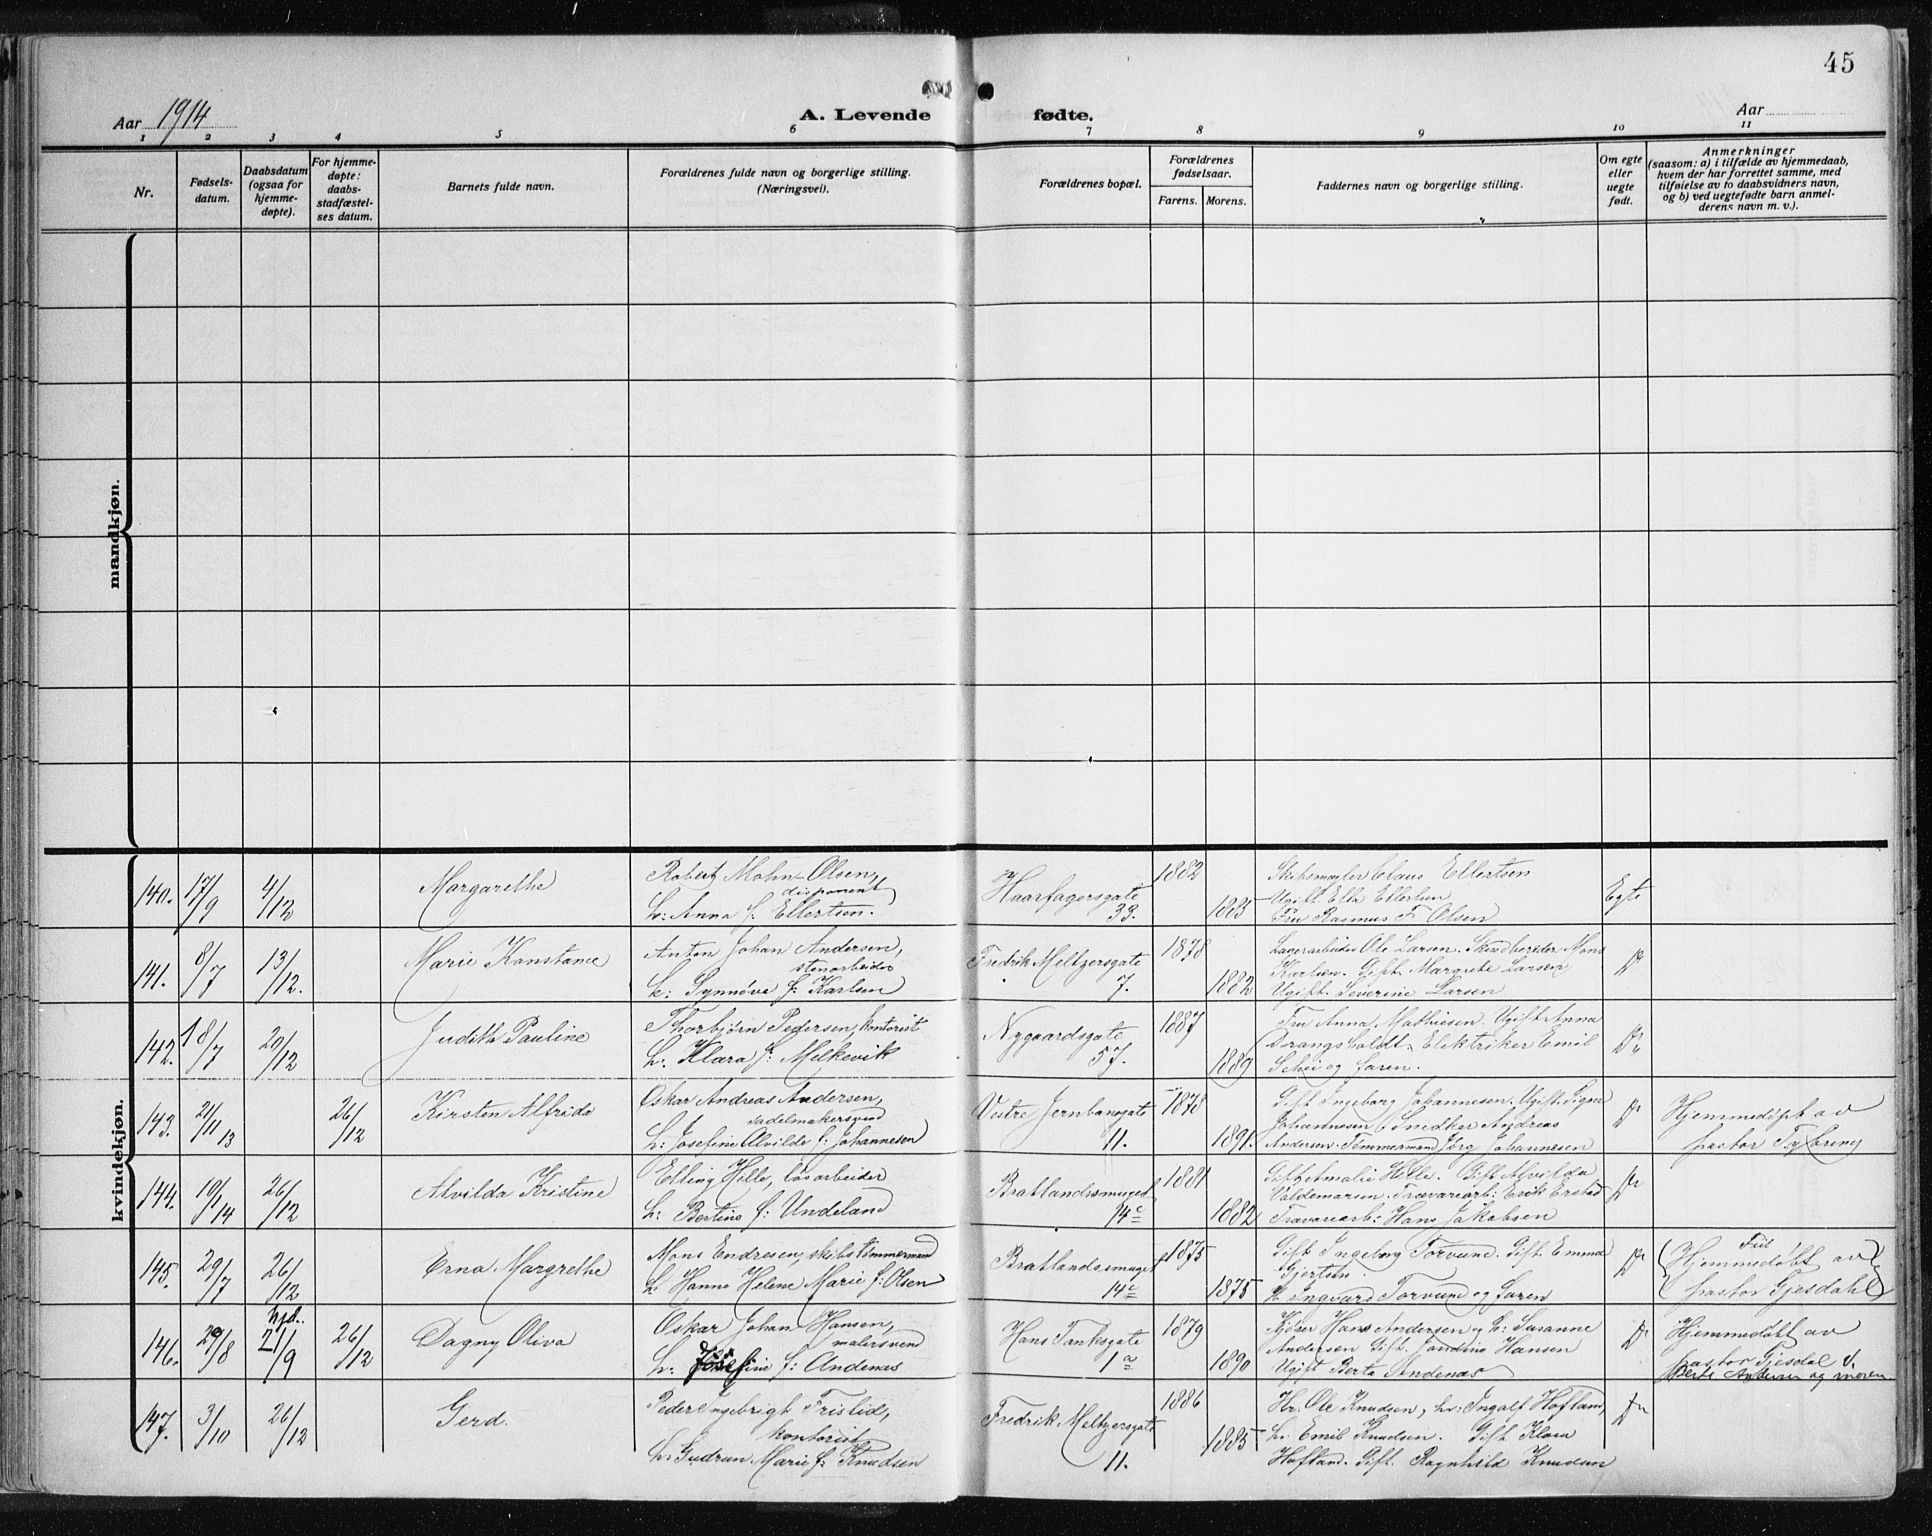 45
Aar 1914
A. Levende
fødte.
Aar
1 2 3 4 5 6 7 8 9 10 11
Nr.
Fødsels-
datum.
Daabsdatum
(ogsaa for
hjemme-
døpte).
For hjemme-
døpte:
daabs-
stadfæstel-
ses datum.
Barnets fulde navn.
Forældrenes fulde navn og borgerlige stilling.
(Næringsvei).
Forældrenes bopæl.
Forældrenes
fødselsaar.
Farens. Morens.
Faddernes navn og borgerlige stilling.
Om egte
eller
uegte
født.
Anmerkninger
(saasom: a) i tilfælde av hjemmedaab,
hvem der har forrettet samme, med
tilføielse av to daabsvidners navn,
og b) ved uegtefødte barn anmel-
derens navn m. v.).
mandkjøn.
kvindekjøn.
140. 17/9 4/12
Margarethe
Robert Mohn Olsen,
disponent
h: Anna f: Ellertsen.
Haarfagersgate
33.
1882
1885
Skibsmægler Claus Ellertsen
Ugift Ella Ellertsen
Fru Rasmus F. Olsen
Egte
141. 8/7 13/12.
Marie Konstance
Anton Johan Andersen,
stenarbeider
h: Synnøve f: Karlsen
Fredrik Meltzersgate
7.
1878
1882
Lagerarbeider Ole Larsen. Skindbereder Mons
Karlsen. Gift. Margrete Larsen
Ugift. Severine Larsen
Do
142. 18/7 20/12
Judith Pauline
Thorbjørn Pedersen, kontorist
h: Klara f: Melkevik
Nygaardsgate
57.
1887
1889
Fru Anna Mathiesen. Ugift Anna
Drangsholdt. Elektriker Emil
Schei og faren.
Do
143. 21/11 13 26/12
Kirsten Alfride
Oskar Andreas Andersen,
sadelmakersvend
h: Josefine Alvilde f: Johannesen
Vestre Jernbanegate
11.
1878
1891.
Gift Ingeborg Johannesen. Ugift Signe
Johannesen Snedker Andreas
Andersen. Tømmermand Jørg Johannesen
Do
Hjemmedøpt av
pastor Tybring
144. 19/1 14 26/12
Alvilda Kristine
Elling Hille, løsarbeider
h: Bertine f: Undeland
Bratlandssmuget
14c
1881
1882
Gift Amalie Hille. Gift Alvilda
Valdemarsen. Trævarearb: Erik Erstad
Trævarearb: Hans Jakobsen
Do
145. 29/7 26/12
Erna Margrethe
Mons Endresen, skibstømmermand
h. Hanna Helene Marie f: Olsen
Bratlandssmuget
14c
1875
1875
Gift Ingeborg Torvund. Gift Emma
Gjertsen.
h. Ingvard Torvund og faren
Do
(Hjemmedøbt av
pastor Gjesdahl)
146. 29/8 hjd. 21/9 26/12
Dagny Oliva
Oskar Johan Hansen,
malersvend
h: Josefine f: Andenæs
Hans Tanksgate
1a
1879
1890
Kjører Hans Andersen og h: Susanne
Andersen Gift. Jondine Hansen
Ugift Berta Andenæs
Do
Hjemmedøbt av
pastor Gjesdal v.
Berte Andersen og moren
147. 3/10 26/12
Gerd.
Peder Ingebrigt Fristid,
kontorist
h: Gudrun Marie f: Knudsen
Fredrik Meltzersgate
11.
1886
1885
Hr. Ole Knudsen, hr: Ingolf Hofland,
h. Emil Knudsen. Gift Klara
Hofland. Gift. Ragnhild Knudsen
Do